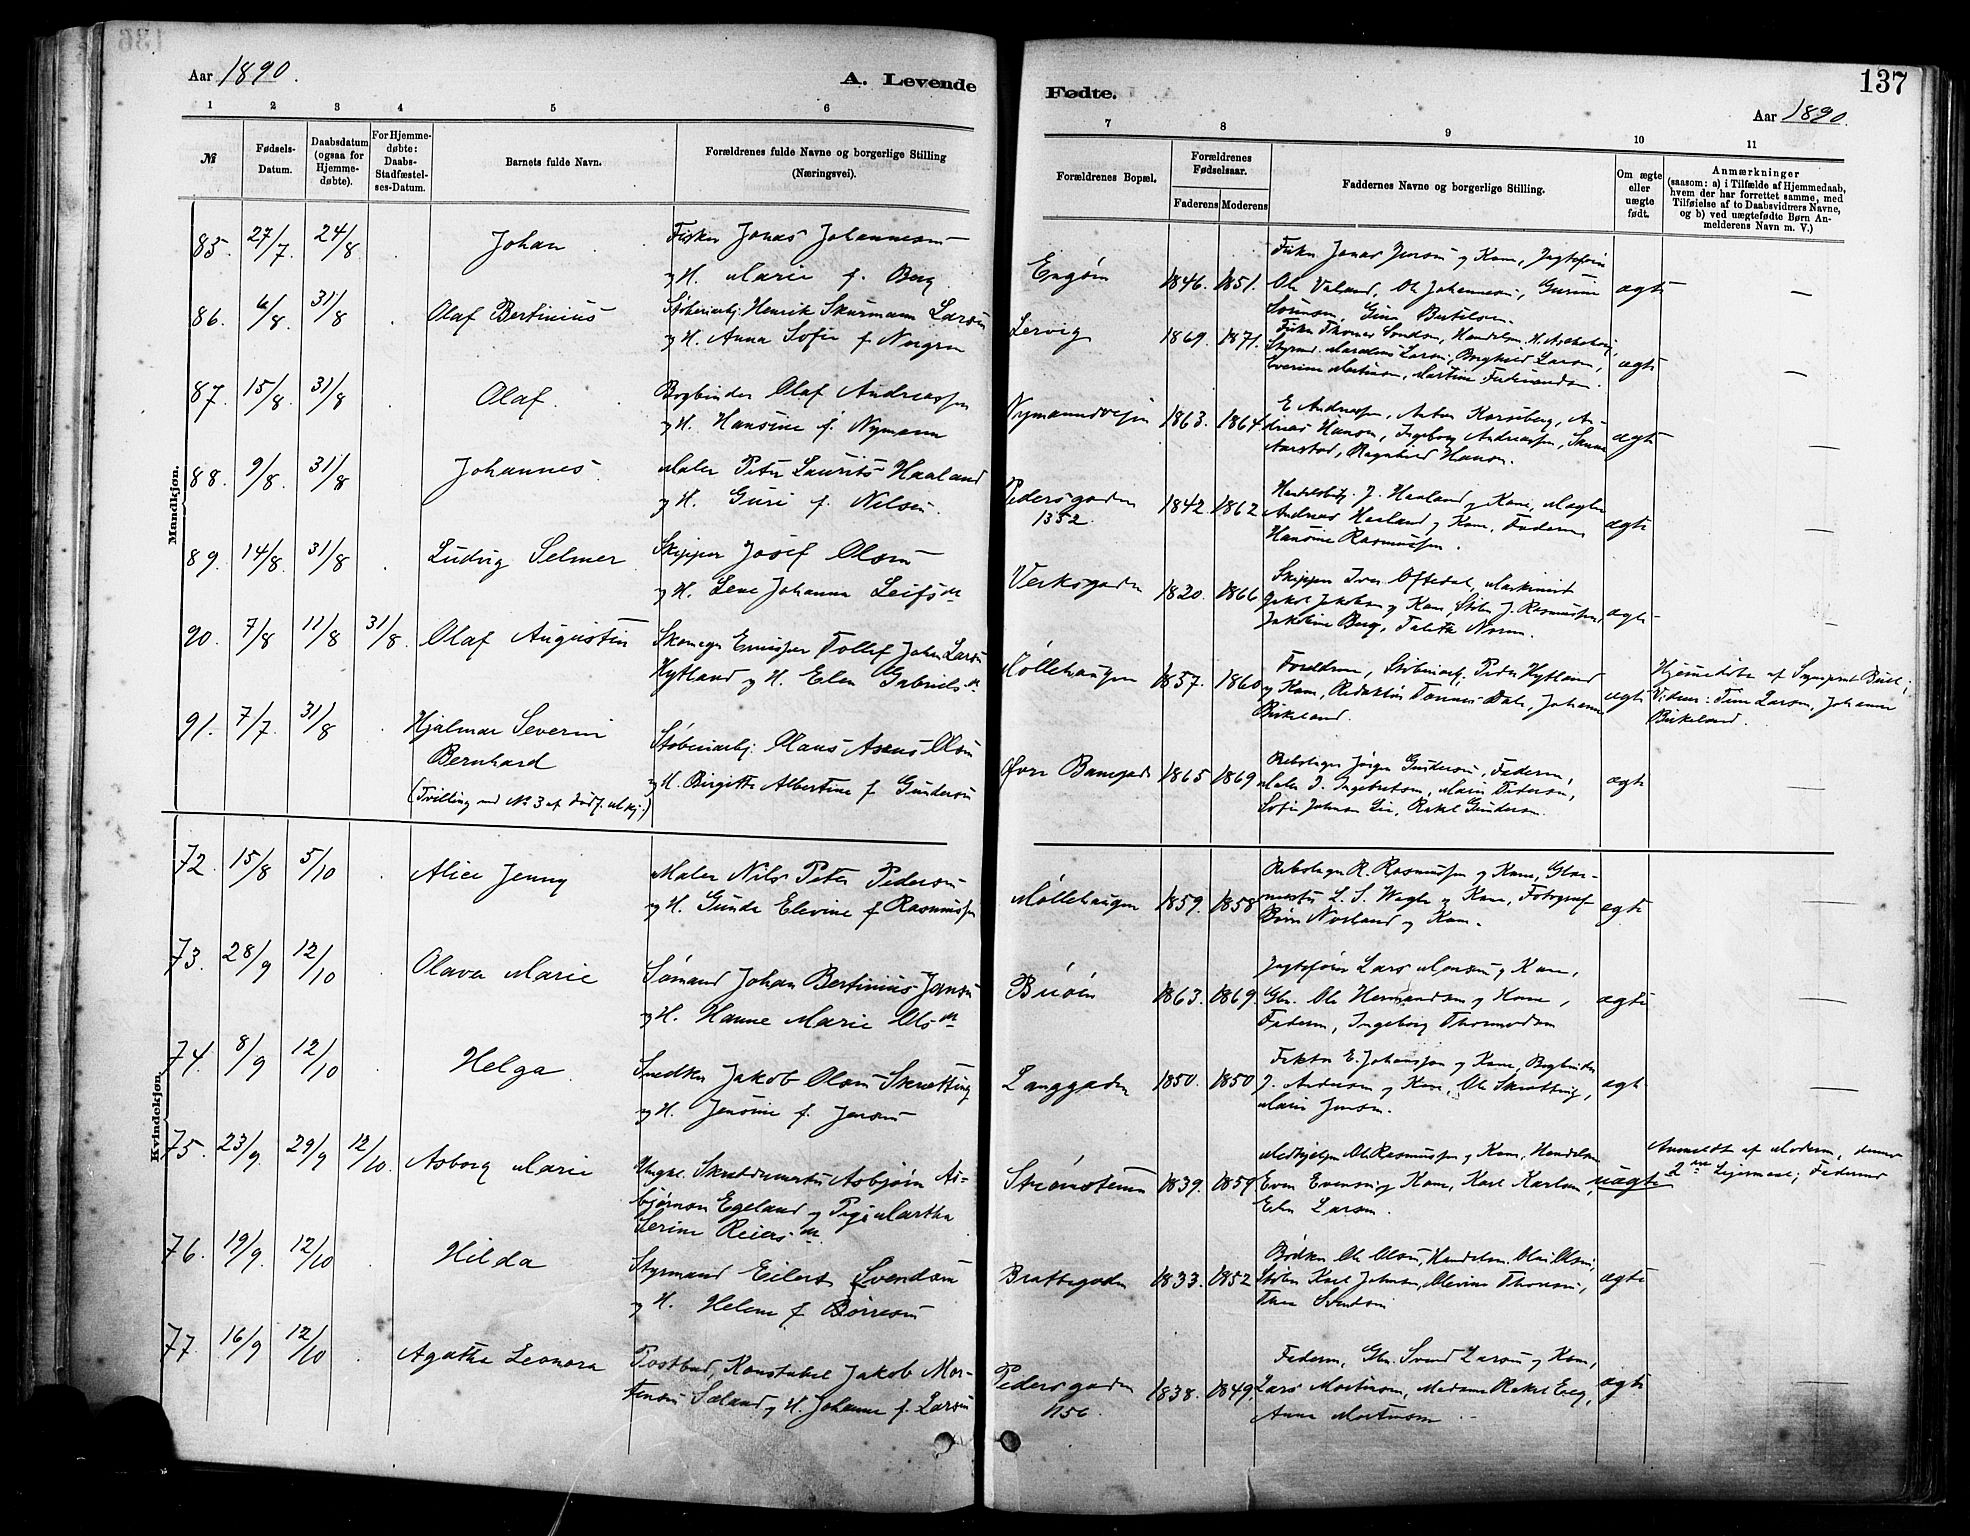 136
Aar 1890.
A. Levende
1 2 3 4 5 6
№
Fødsels-Datum.
Daabsdatum (ogsaa for Hjemmedøbte).
For Hjemmedøbte: Daabs-Stadfæstelses-Datum.
Barnets fulde Navn.
Forældrenes fulde Navne og borgerlige Stilling (Næringsvei).
Mandkjøn.
85. 27/7. 24/8 . Johan . Fisker Jonas Johannesen
og H. Marie f. Berg.
86. 6/8. 31/8 . Olaf Bertinius Støberiarbj. Henrik Skurmann Larsen
og H. Anna Sofie f.
87. 15/8. 31/8 . Olaf. Bogbinder Olaf Andreassen
og H. Hansine f. Nymann
88. 9/8. 31/8 . Johannes. Maler Peter Laurits Haaland
og H. Guri f. Nilsen.
89. 14/8. 31/8 . Ludvig Selmer. Skipper Josef Olsen
og H. Lene Johanna Leifsdr
90. 7/8 11/8 31/8. Olaf Augustin Tollef John Larsen
Hytland og H. Elen Gabrielsdr
91. 7/7. 31/8 . Hjalmar Severin
Bernhard
(Tvilling med No 3 af dødf. Mkj.)
Støberiarbj. Olaus Olsen
og H. Birgitte Albertine f. Gundersen
Kvindekjøn.
72. 15/8 5/10 . Alice Jenny Maler Nils Peter Pedersen
og H. Gunda Elevine f Rasmussen
73. 28/9 12/10 . Olava Marie Sømand Johan Bertinius Jansen
og H. Hanne Marie Olsdr
74. 8/9 12/10 . Helga. Snedker Jakob Olsen Skrætting
og H. Jensine f. Jensen
75. 23/9. 29/9 12/10. Asborg Marie Ungk. Skræddermester Asbjørn As-
bjørnsen Egeland og Pige Martha
Serine Reiersdr.
76. 19/9. 12/10 . Hilda Styrmand Eilert Svendsen
og H. Helene f. Børresen
77. 16/9 12/10 . Agatha Leonora Postbud, Konstabel Jakob Mor-
tensen Sæland og H. Johanne f. Larsen
137
Fødte.
Aar 1890.
7 8 9 10 11
Forældrenes Bopæl.
Forældrenes Fødselsaar.
Faderens Moderens
Faddernes Navne og borgerlige Stilling.
Om ægte eller uægte født.
Anmærkninger (saasom: a) i Tilfælde af Hjemmedaab, hvem der har forrettet samme, med Tilføielse af to Daabsvidners Navne, og b) ved uægtefødte Børn Anmelderens Navn m. V.)
Engøen 1846. 1851. Fisker Jonas Jensen og Kone, Jagtefører
Ole Valand, Ole Johannesen, Gurine
Sørensen, Gina Bertelsen. ægte —
Lervig 1869. 1871. Fisker Thomas
Styrmd. Larsen, Borghild Larsen,
Everine Mortensen, Martine Ferdinandsen. ægte —
Nymannsveien 1863. 1864. E Andreassen, Anton Korsberg, An-
dreas Hansen, Ingeborg Andreassen,
Aarstad, Ragnhild Hansen. ægte —
Pedersgaden
1352. 1842. 1862 J. Haaland og Kone, Mægler
Andreas Haaland og Kone, Faderen
Hansine Rasmussen. ægte —
Verksgaden 1820. 1866 Skipper Iver Oftedal, Maskinist
Jakob Jakobsen og Kone, J. Rasmussen,
Jakobine Berg, ægte —
Møllehaugen 1857. 1860 Forældrene, Støberiarb. Peder Hytland
og Kone, Redaktør Tønnes Dale, Johanne
Birkeland. ægte Hjemmedøbt af Sognepræst
Vidner: Tine Larsen, Johanne
Birkeland.
Øvre Banegade 1865 1869 Rebslager Jørgen Gundersen, Faderen,
Maler I. Ingebretsen, Marie Pedersen,
Sofie Johnsen Lie, Rakel Gundersen. ægte
Møllehaugen 1859. 1858 Rebslager R. Rasmussen og Kone, Glar-
mester L. S. Wagle og Kone, Fotograf
Børre Norland og Kone. ægte —
Buøen 1863. 1869. Jagtefører Lars Monsen og Kone,
Gbr. Ole Hermandsen og Kone,
Faderen, Ingeborg Thormodsen ægte —
Langgaden 1850. 1850 Faktor E. Johansen og Kone, Bogbinder
J. Andersen og Kone, Ole Skrætting,
Maria Jensen. ægte —
Strømstenen 1839. 1859 Medhjelper Ole Rasmussen og Kone, Handelsm.
Even Evensen og Kone, Karl Karlsen,
Elen Larsen. uægte Anmeldt af Moderen, dennes
2den Leiermaal; Faderens
Brattegaden 1833. 1852 Bødker Ole Olsen, Handelsm. Olai Olsen,
Støber Karl Johnsen, Olevine Thorsen,
Thea Svendsen ægte —
Pedersgaden
1156. 1838. 1849. Faderen, Gbr. Svend Larsen og Kone,
Lars Mortensen, Madame Rakel Eeg,
Anna Mortensen ægte —